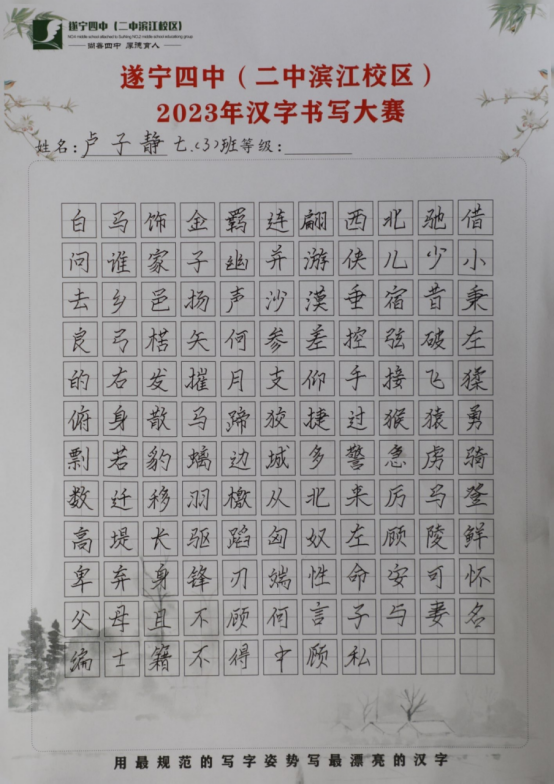 遂宁四中（二中滨江校区）
尚善四中 厚德育人
遂宁四中（二中滨江校区）
2023年汉字书写大赛
姓名：卢子静 七.(3)班等级：
白马饰金羁连翩西北驰借
问谁家子幽并游侠儿少小
去乡邑扬声沙漠垂宿昔秉
良弓楛矢何参差控弦破左
的右发摧月支仰手接飞猱
俯身散马蹄狡捷过猴猿勇
剽若豹螭边城多警急虏骑
数迁移羽檄从北来厉马登
高堤长驱蹈匈奴左顾陵鲜
卑弃身锋刃端性命安可怀
父母且不顾何言子与妻名
编士籍不得中顾私
用最规范的写字姿势写最漂亮的汉字